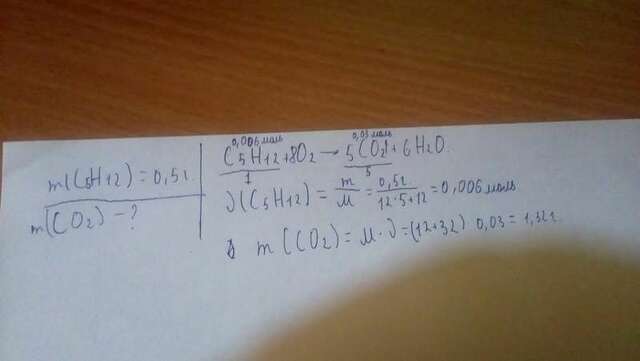 m(C5H12) = 0,5г.
m(CO2) - ?
0,006 моль 0,03 моль
C5H12 + 8O2 → 5CO2 + 6H2O.
1 5
ν(C5H12) = m/M = 0,5г./12·5+12 = 0,006 моль
m(CO2) = M·ν = (12+32) 0,03 = 1,32г.